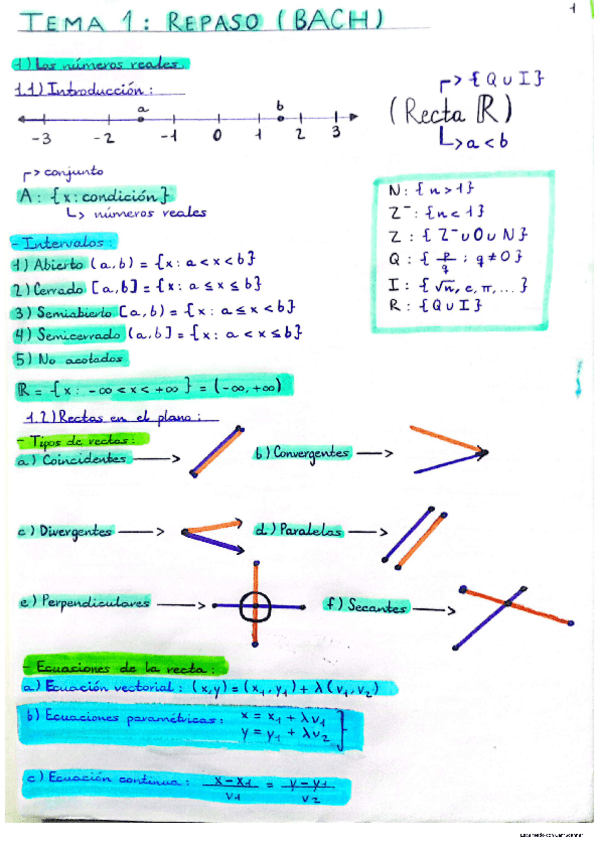 1
TEMA 1: REPASO (BACH)
1) Los números reales.
1.1) Introducción:
a b
-3 -2 -1 0 1 2 3
{Q ∪ I}
(Recta ℝ)
a < b
conjunto
A: {x: condición}
números reales
N: {n > 1}
Z⁻: {n < 1}
Z: {Z⁻ ∪ 0 ∪ N}
Q: {p/q ; q ≠ 0}
I: {√n, e, π, ...}
R: {Q ∪ I}
- Intervalos:
1) Abierto (a, b) = {x: a < x < b}
2) Cerrado [a, b] = {x: a ≤ x ≤ b}
3) Semiabierto [a, b) = {x: a ≤ x < b}
4) Semicerrado (a, b] = {x: a < x ≤ b}
5) No acotados
ℝ = {x: -∞ < x < +∞} = (-∞, +∞)
1.2) Rectas en el plano:
- Tipos de rectas:
a) Coincidentes
b) Convergentes
c) Divergentes
d) Paralelas
e) Perpendiculares
f) Secantes
- Ecuaciones de la recta:
a) Ecuación vectorial: (x, y) = (x₁, y₁) + λ(v₁, v₂)
b) Ecuaciones paramétricas: x = x₁ + λv₁
y = y₁ + λv₂
c) Ecuación continua: x-x₁/v₁ = y-y₁/v₂